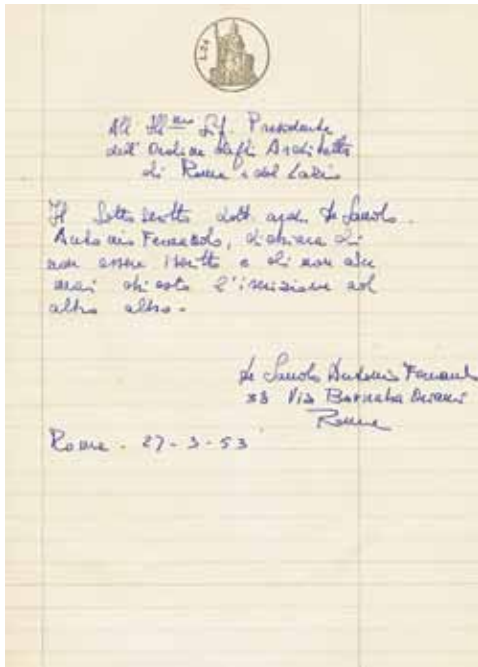 L. 24
All' Ill.mo Sig. Presidente
dell'Ordine degli Architetti
di Roma e del Lazio
Il sottoscritto dott. arch. de
Antonio Fernando, dichiara di
non essere iscritto e di non aver
mai chiesto l'iscrizione ad
altro albo.
de Antonio
33 Via Barnaba Oriani
Roma
Roma. 27-3-53